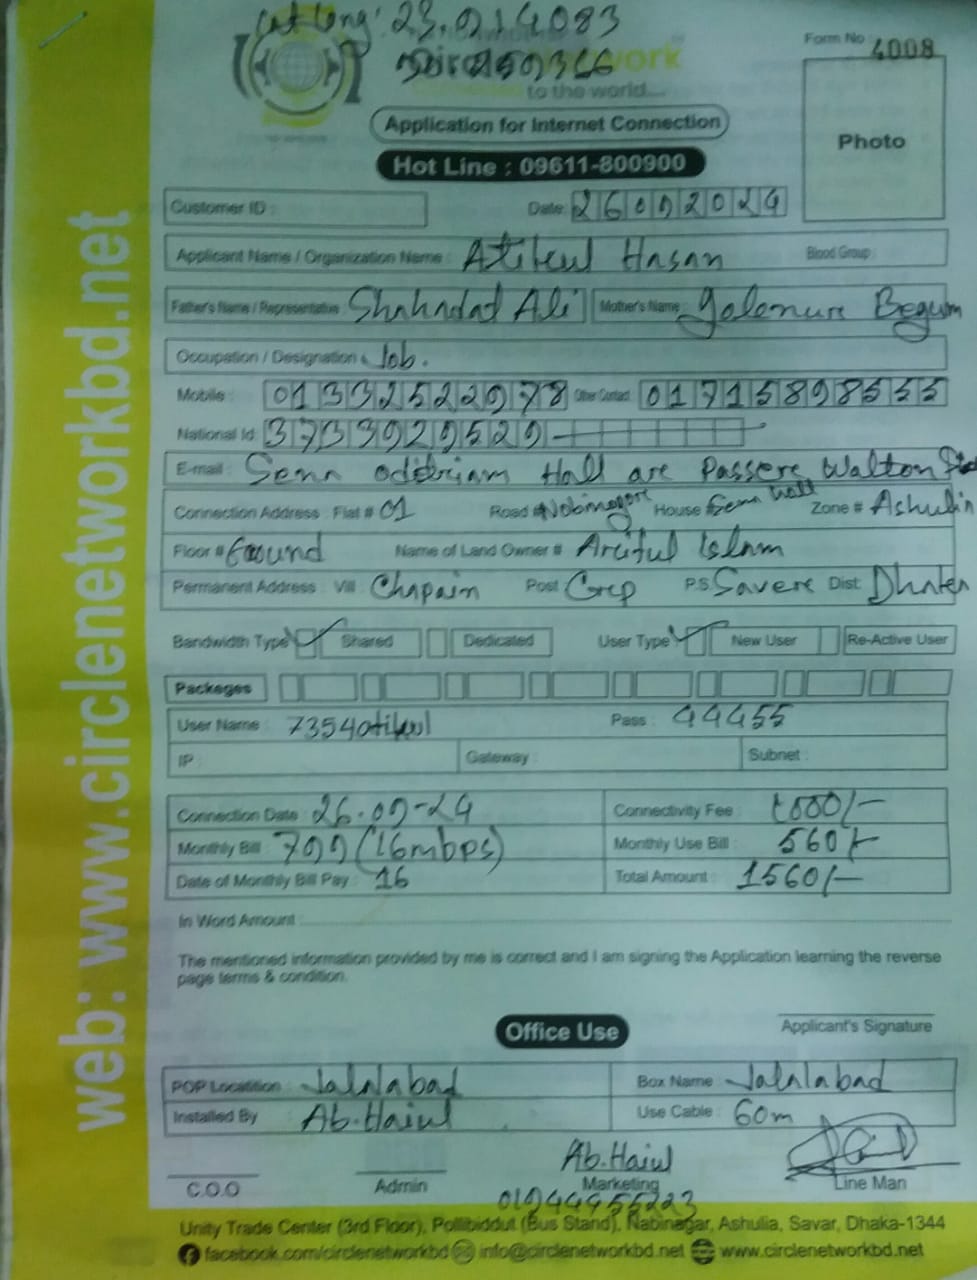 Lat Long: 23.914083
Form No 4008
Network
to the world....
Application for Internet Connection
Photo
Hot Line : 09611-800900
Customer ID :
Date: 26092024
Applicant Name / Organization Name : Atikul Hasan Blood Group :
Father's Name / Representative : Shahadat Ali Mother's Name : Golenure Begum
Occupation / Designation : Job.
Mobile : 01332522978 Other Contact 01715898555
National Id 3733929529
E-mail : Senn Hall are Passere Walton
Connection Address : Flat # 01 Road # Nobinagore House # Senn Hall Zone # Ashulia
Floor # Ground Name of Land Owner # Ariful Islam
Permanent Address : Vill : Chapain Post : Crcp P.S: Savere Dist: Dhaka
Bandwidth Type Shared Dedicated User Type New User Re-Active User
Packages
User Name : 7354atikul Pass : 44455
IP : Gateway : Subnet :
Connection Date : 26.09-24 Connectivity Fee : 1000/-
Monthly Bill : 799 (16mbps) Monthly Use Bill : 560/-
Date of Monthly Bill Pay : 16 Total Amount : 1560/-
In Word Amount :
The mentioned information provided by me is correct and I am signing the Application learning the reverse
page terms & condition.
Applicant's Signature
Office Use
POP Locatition : Jalalabad Box Name : Jalalabad
Installed By : Ab.Haiul Use Cable : 60m
Ab.Haiul
C.O.O Admin Marketing Line Man
01944455223
Unity Trade Center (3rd Floor), Pollibiddut (Bus Stand), Nabinagar, Ashulia, Savar, Dhaka-1344
facebook.com/circlenetworkbd info@circlenetworkbd.net www.circlenetworkbd.net
web: www.circlenetworkbd.net